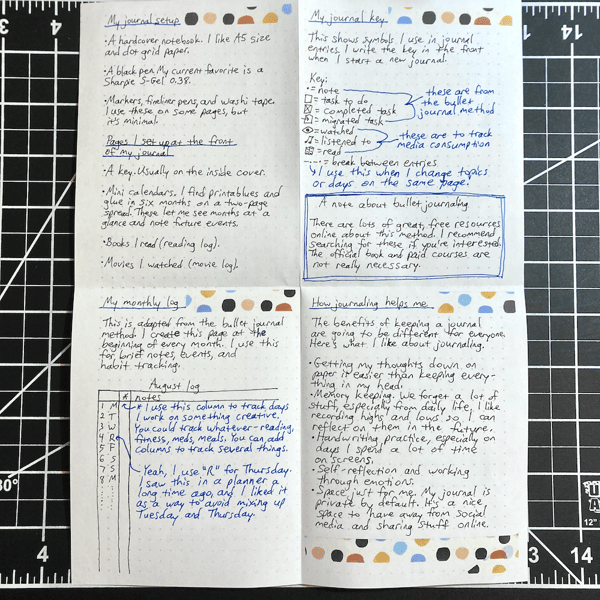 My journal setup
•A hardcover notebook. I like A5 size
and dot grid paper.
•A black pen. My current favorite is a
Sharpie S-Gel 0.38.
•Markers, fineliner pens, and washi tape.
I use these on some pages, but
it's minimal.
Pages I set up at the front
of my journal
•A key. Usually on the inside cover.
•Mini calendars. I find printables and
glue in six months on a two-page
spread. These let me see months at a
glance and note future events.
•Books I read (reading log).
•Movies I watched (movie log).
My journal key
This shows symbols I use in journal
entries. I write the key in the front
when I start a new journal.
Key:
• = note
= task to do
= completed task
= migrated task
these are from
the bullet
journal method
= watched
= listened to
= read
these are to track
media consumption
= break between entries
I use this when I change topics
or days on the same page.
A note about bullet journaling
There are lots of great, free resources
online about this method. I recommend
searching for these if you're interested.
The official book and paid courses are
not really necessary.
My monthly log
This is adapted from the bullet journal
method. I create this page at the
beginning of every month. I use this
for brief notes, events, and
habit tracking.
August log
# notes
1 M
2 T
3 W
4 R
5 F
6 S
7 S
8 M
* I use this column to track days
I work on something creative.
You could track whatever-reading,
fitness, meds, meals. You can add
columns to track several things.
Yeah, I use "R" for Thursday.
I saw this in a planner a
long time ago, and I liked it
as a way to avoid mixing up
Tuesday and Thursday.
How journaling helps me
The benefits of keeping a journal
are going to be different for everyone.
Here's what I like about journaling.
•Getting my thoughts down on
paper is easier than keeping every-
thing in my head.
•Memory keeping. We forget a lot of
stuff, especially from daily life. I like
recording highs and lows so I can
reflect on them in the future.
•Handwriting practice, especially on
days I spend a lot of time
on screens.
•Self-reflection and working
through emotions.
•Space just for me. My journal is
private by default. It's a nice
space to have away from social
media and sharing stuff online.
3
14
30°
4
13
14
12"